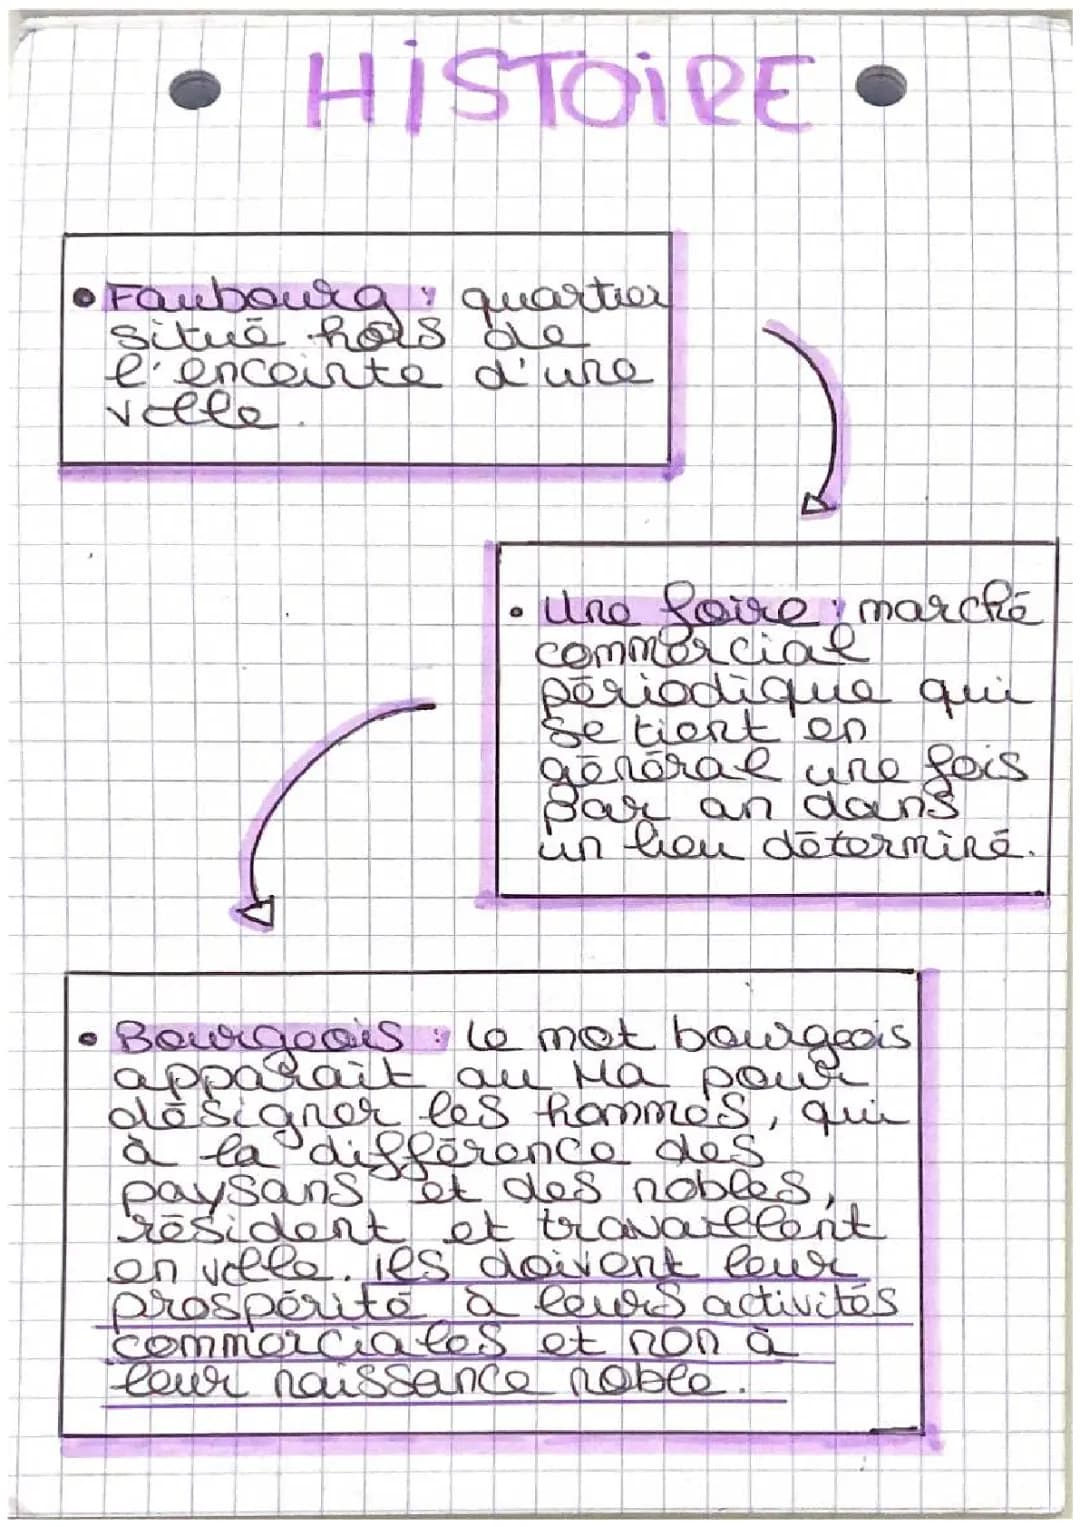 HiSTOiRE
• Faubourg : quartier
situé hors de
l'enceinte d'une
ville.
• Une foire : marché
commercial
périodique qui
se tient en
général une fois
par an dans
un lieu déterminé.
• Bourgeois : le mot bourgeois
apparait au Ma pour
désigner les hommes, qui
à la différence des
paysans et des nobles,
résident et travaillent
en ville. ils doivent leur
prospérité à leurs activités
commerciales et non à
leur naissance noble.